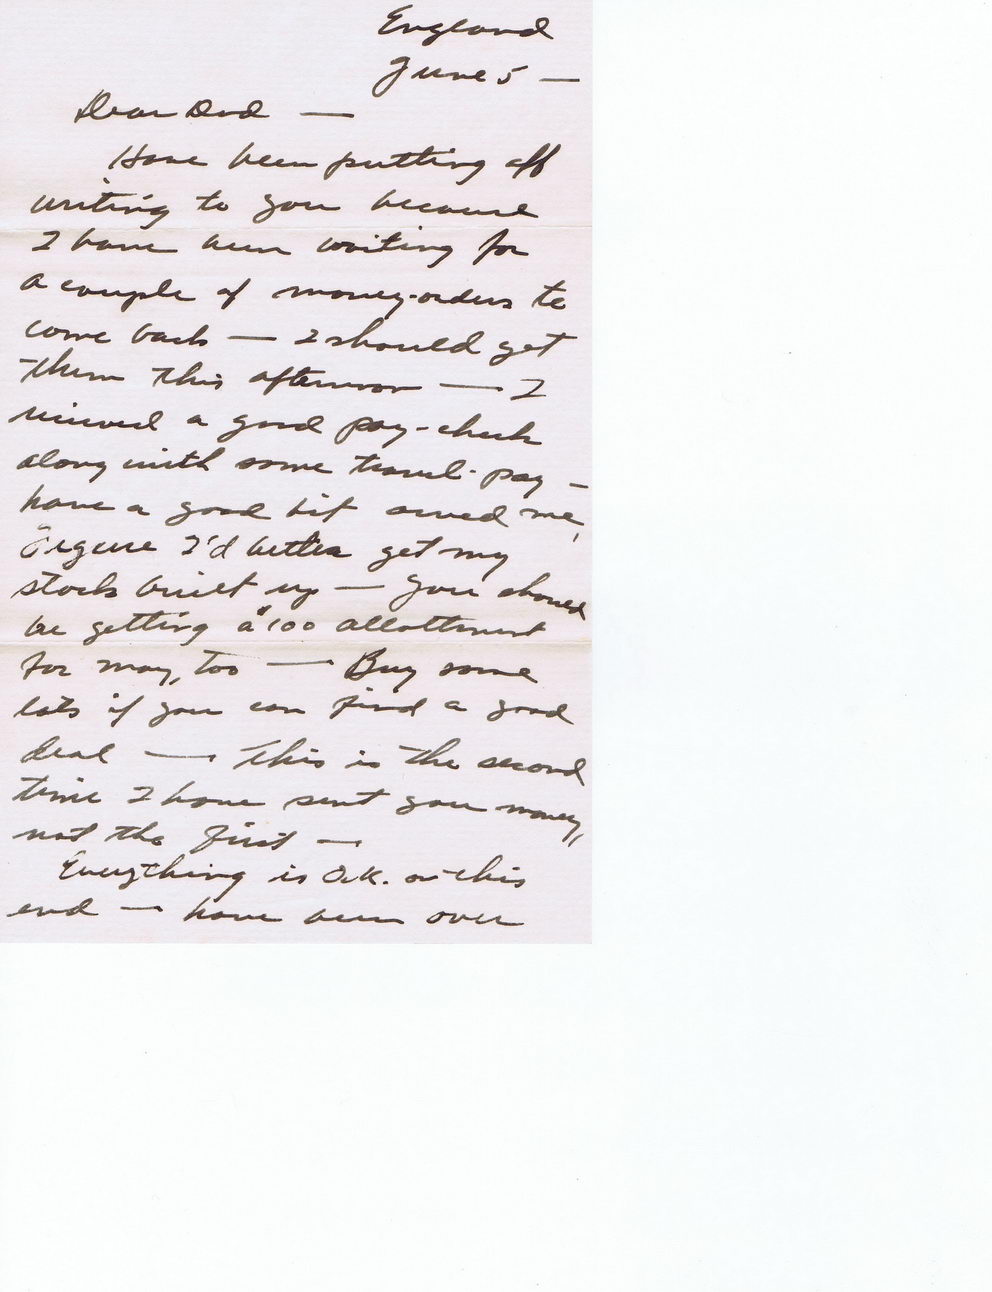 England
June 5 —
Dear Dad —
Have been putting off
writing to you because
I have been waiting for
a couple of money-orders to
come back — I should get
them this afternoon — I
received a good pay-check
along with some travel-pay —
have a good bit owed me,
Figure I'd better get my
stock built up — You should
be getting a $100 allotment
for may, too — Buy some
lots if you can find a good
deal — This is the second
time I have sent you money,
not the first —
Everything is O.K. on this
end — have been over